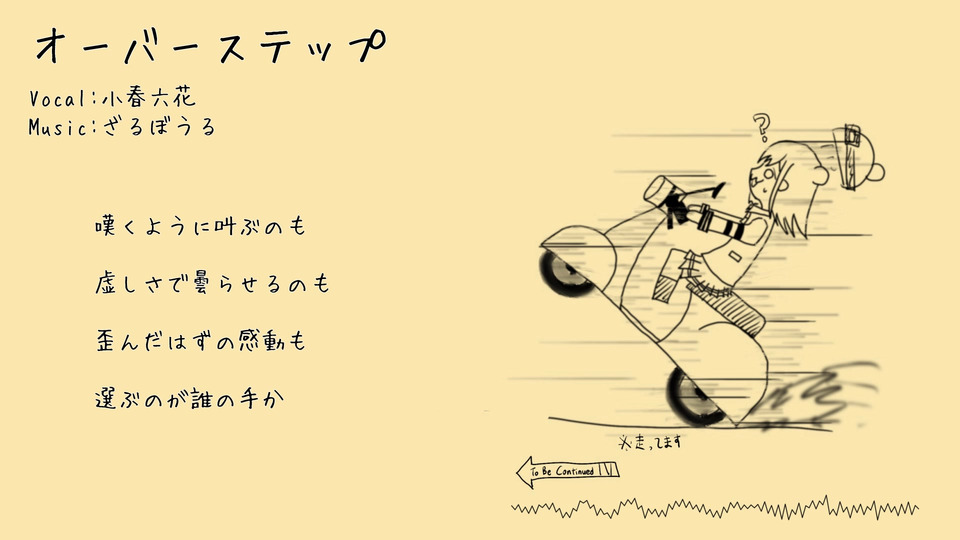 オーバーステップ
Vocal:小春六花
Music:ざるぼうる
嘆くように叫ぶのも
虚しさで曇らせるのも
歪んだはずの感動も
選ぶのが誰の手か
?
※走ってます
To Be Continued